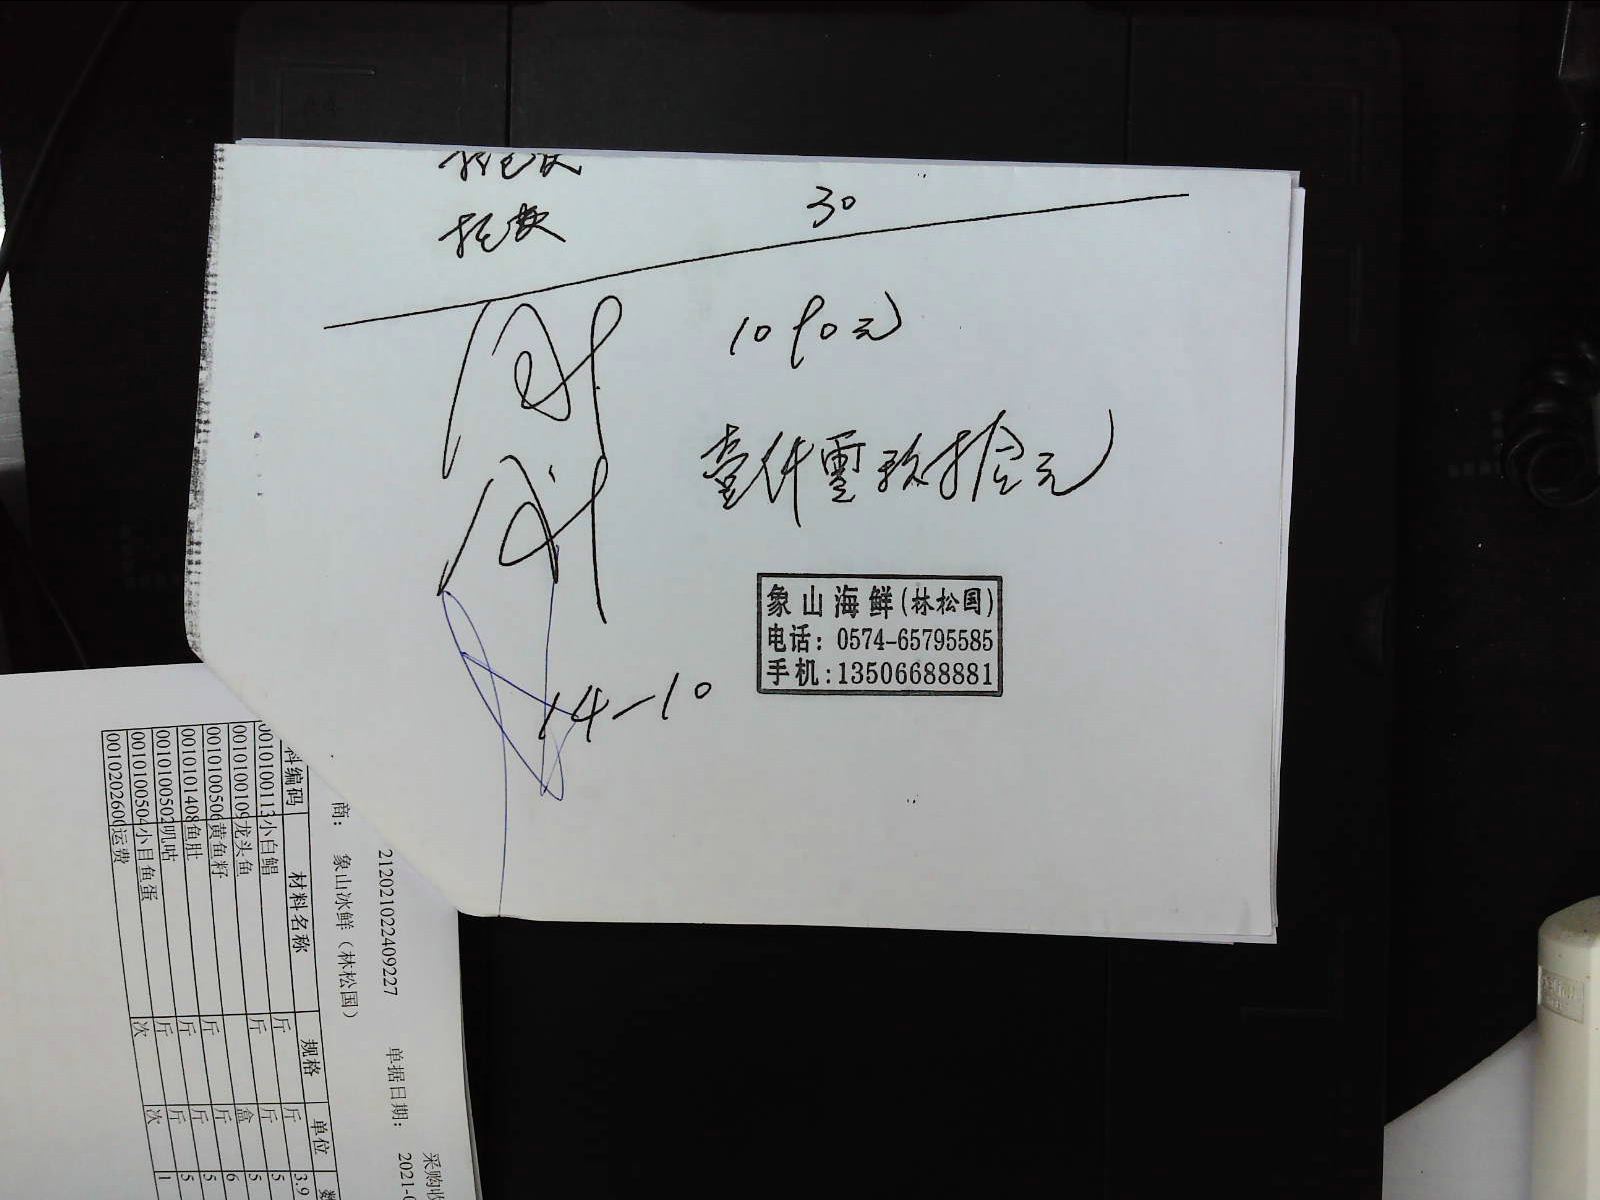 30
1090元
壹仟零玖拾元
象山海鲜(林松国)
电话: 0574-65795585
手机:13506688881
14-10
采购收
212021022409227 单据日期: 2021-0
商: 象山冰鲜（林松国）
料编码 材料名称 规格 单位 数
0010100113 小白鲳 斤 斤 3.9
0010100109 龙头鱼 斤 斤 5
0010100506 黄鱼籽 盒 5
0010101408 鱼肚 斤 斤 6
0010100502 叽咕 斤 斤 5
0010100504 小目鱼蛋 斤 斤 5
0010202600 运费 次 次 1